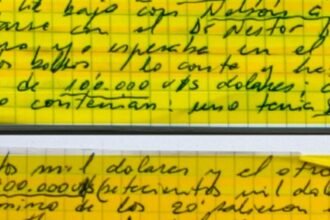 bajo con Nelson
con el Dr Nestor
y yo esperaba en el
los bolsos lo conto y
de 100.000 U$S dolares:
contenian: uno tenia
mil dolares y el otro
00.000 U$S (setecientos mil
de los 20' salieron